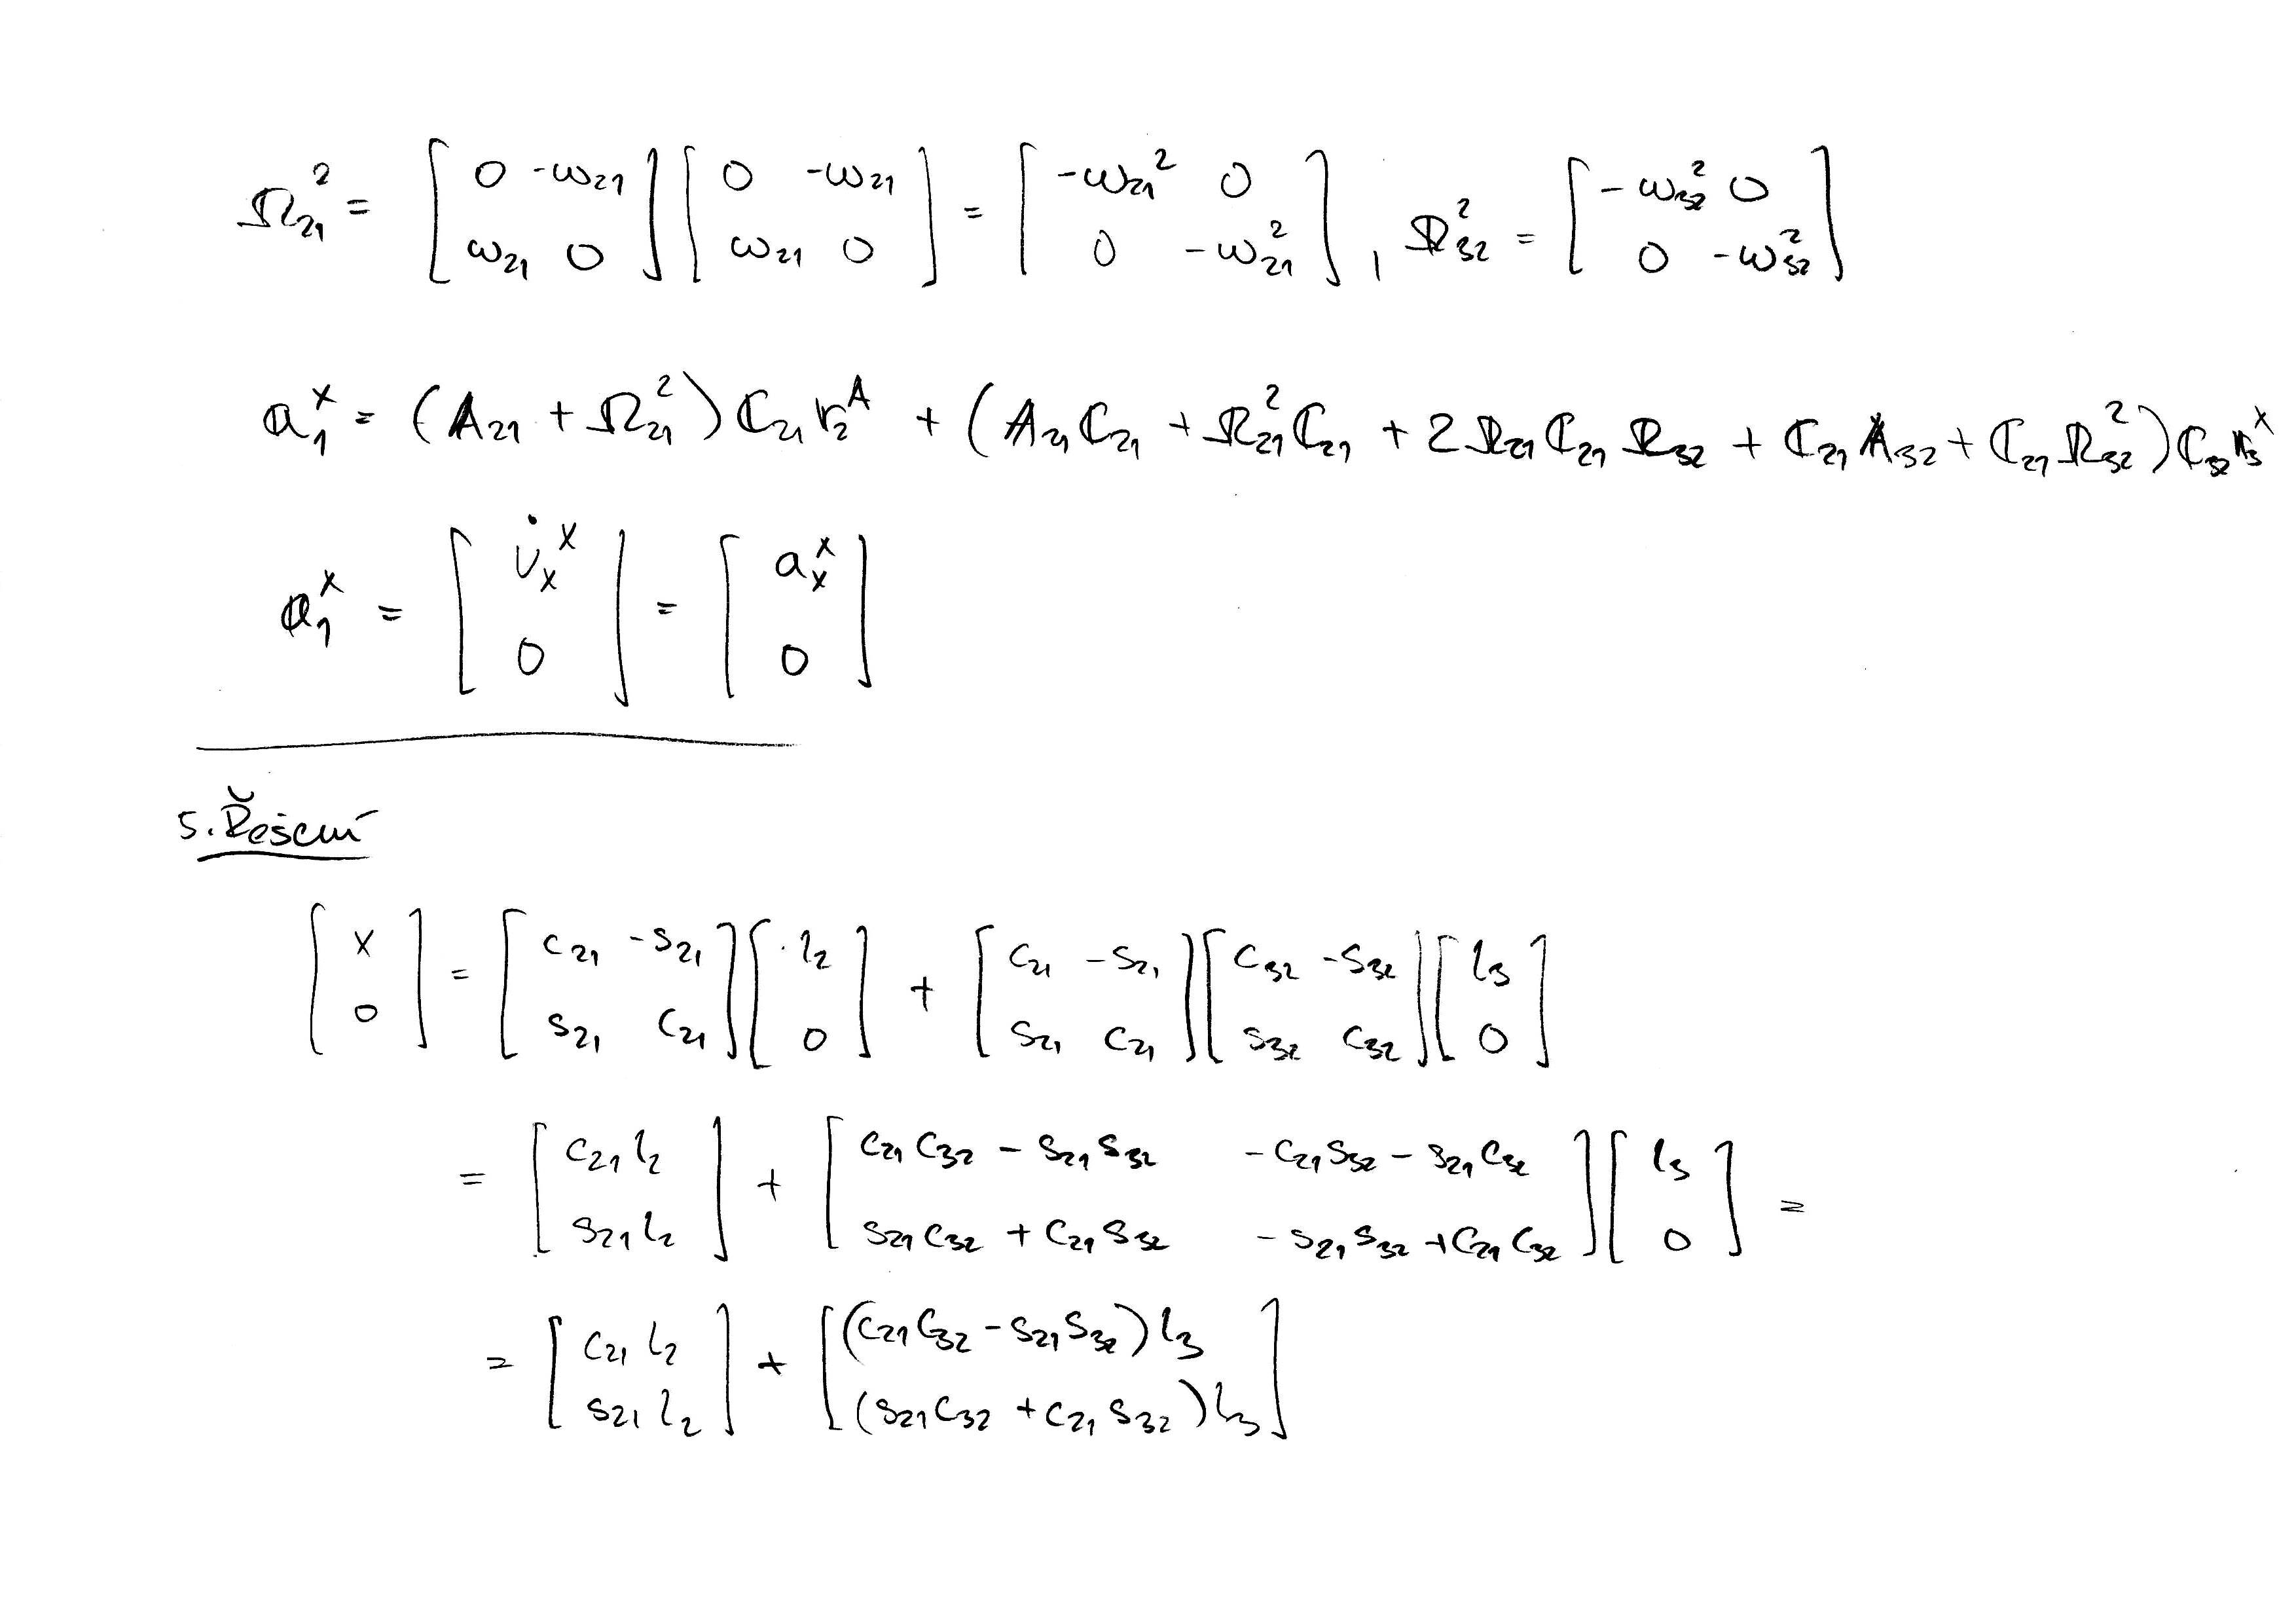 Ω₂₁² = [0 -ω₂₁; ω₂₁ 0] [0 -ω₂₁; ω₂₁ 0] = [-ω₂₁² 0; 0 -ω₂₁²], Ω₃₂² = [-ω₃₂² 0; 0 -ω₃₂²]
a₁ˣ = (A₂₁ + Ω₂₁²) C₂₁ r₂ᴬ + (A₂₁ C₂₁ + Ω₂₁² C₂₁ + 2 Ω₂₁ C₂₁ Ω₃₂ + C₂₁ A₃₂ + C₂₁ Ω₃₂²) C₃₂ r₃ˣ
a₁ˣ = [v̇ₓˣ; 0] = [aₓˣ; 0]
5. Řešení
[x; 0] = [c₂₁ -s₂₁; s₂₁ c₂₁] [l₂; 0] + [c₂₁ -s₂₁; s₂₁ c₂₁] [c₃₂ -s₃₂; s₃₂ c₃₂] [l₃; 0]
= [c₂₁ l₂; s₂₁ l₂] + [c₂₁ c₃₂ - s₂₁ s₃₂ -c₂₁ s₃₂ - s₂₁ c₃₂; s₂₁ c₃₂ + c₂₁ s₃₂ -s₂₁ s₃₂ + c₂₁ c₃₂] [l₃; 0] =
= [c₂₁ l₂; s₂₁ l₂] + [(c₂₁ c₃₂ - s₂₁ s₃₂) l₃; (s₂₁ c₃₂ + c₂₁ s₃₂) l₃]